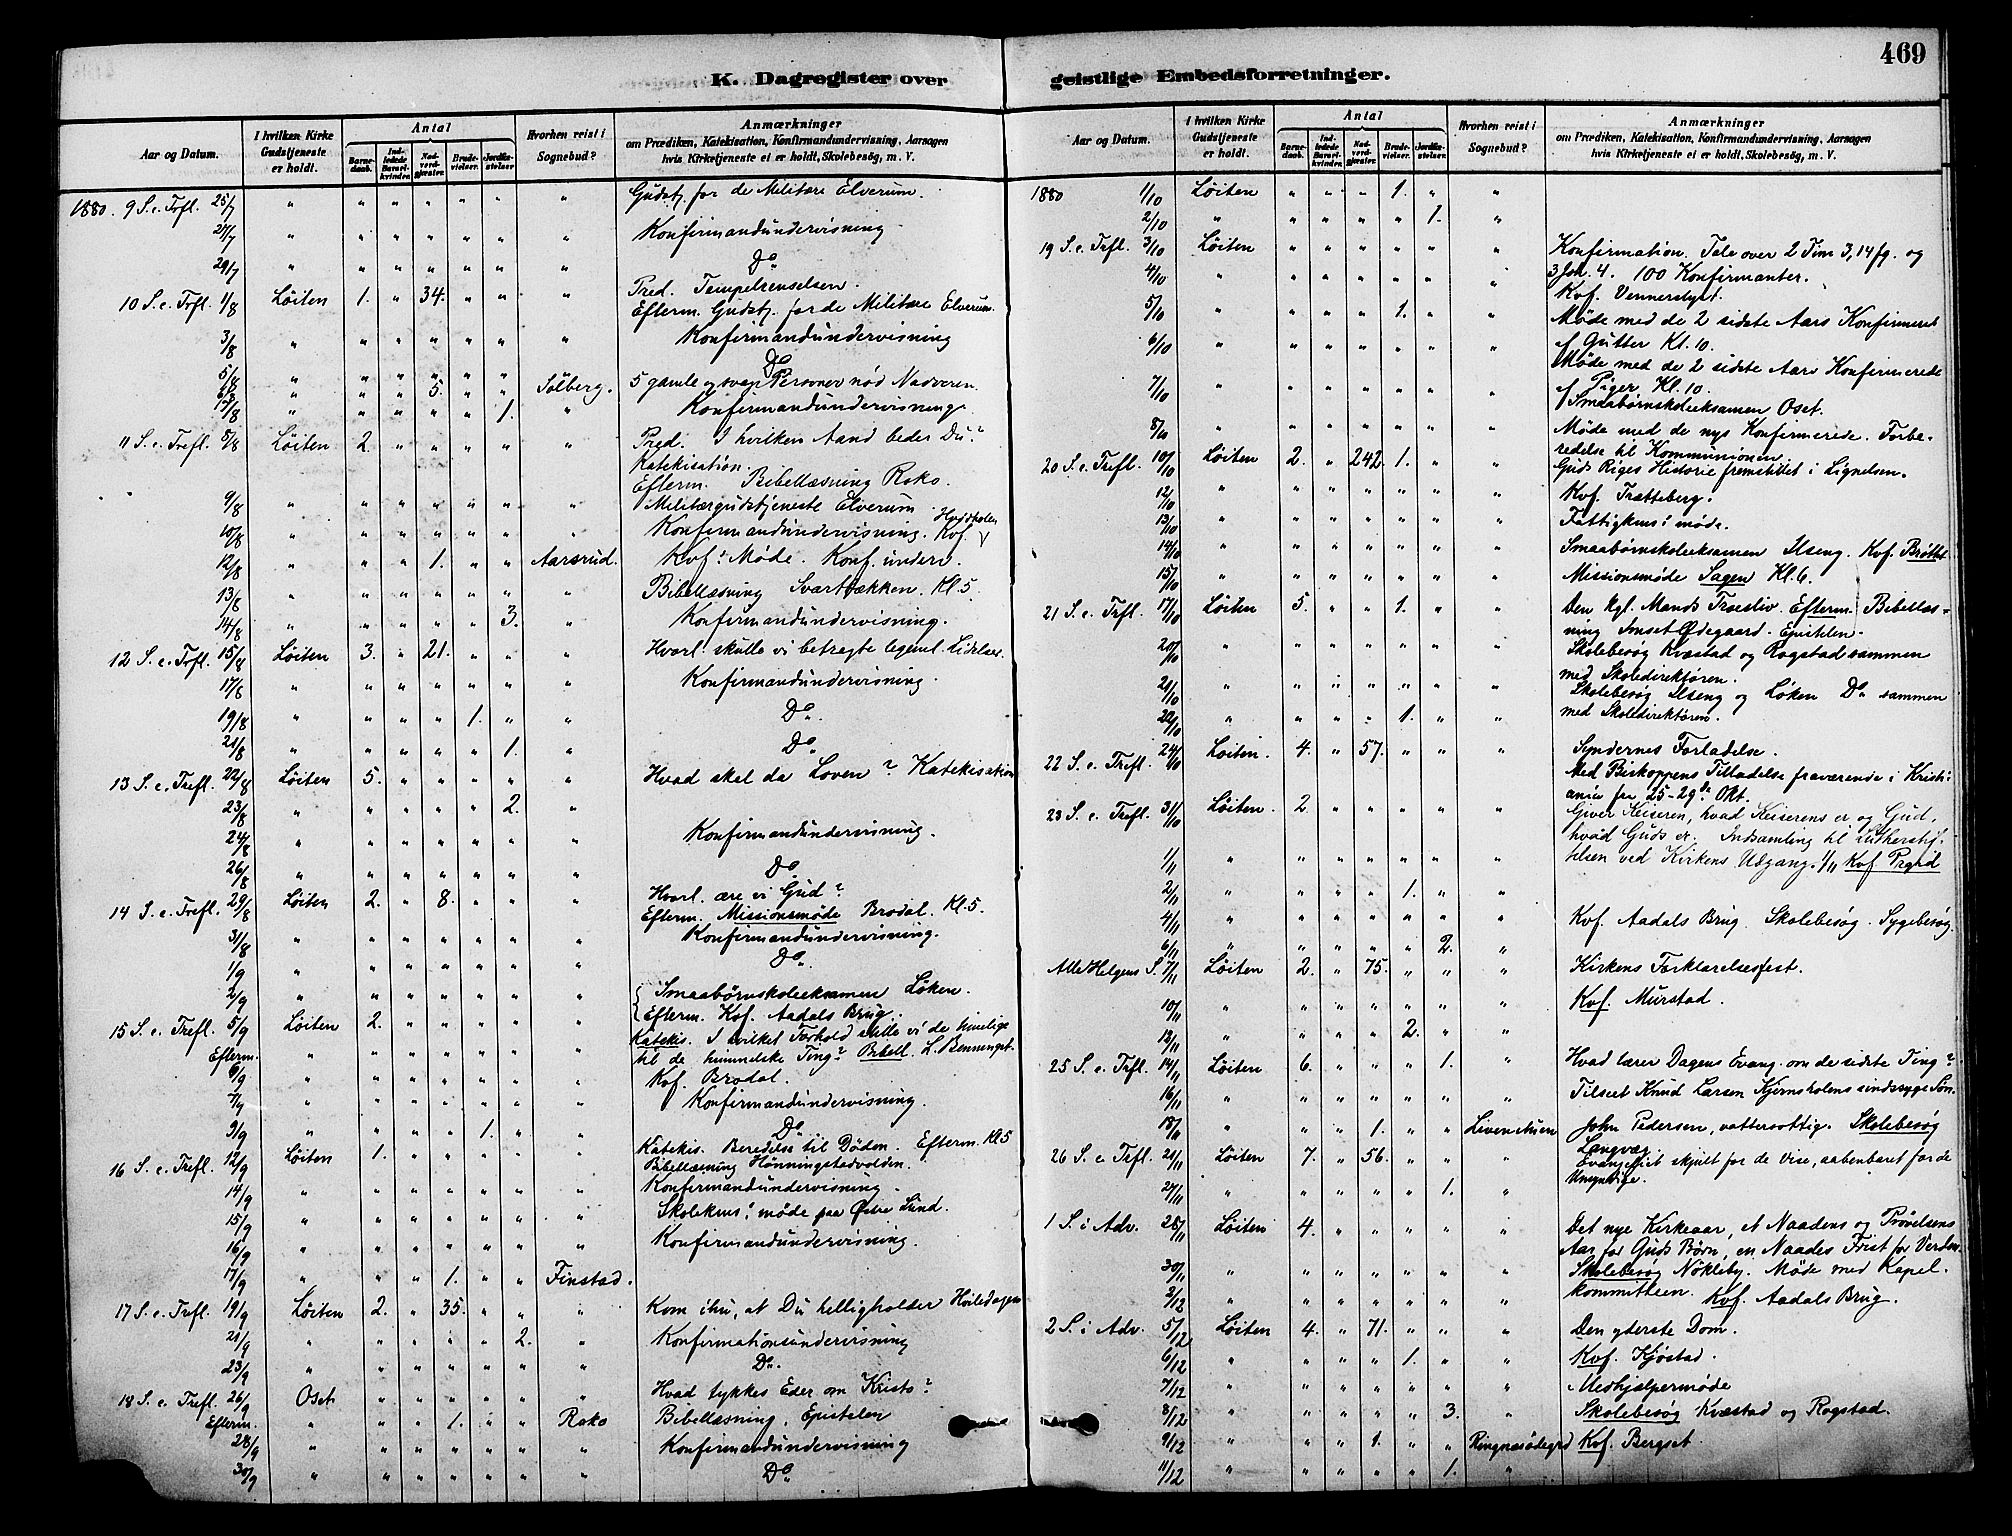 469
K. Dagregister over
Aar og Datum.
I hvilken Kirke Gudstjeneste er holdt.
Antal
Barnedaab.
Indledede Barselkvinder.
Nadverdgjæster.
Brudevielser.
Jordfæstelser.
Hvorhen reist i Sognebud?
Anmærkninger
om Prædiken, Katekisation, Konfirmandundervisning, Aarsagen
hvis Kirketjeneste ei er holdt, Skolebesøg, m. V.
1880. 9 S. e. Trfl. 25/7 " " " " " " " Gudstj. for de Militære Elverum.
27/7 " " " " " " " Konfirmandundervisning
29/7 " " " " " " " Do
10 S. e. Trfl. 1/8 Løiten 1. " 34. " " " Pred. Tempelrenselsen.
Efterm. Gudstj. for de Militære Elverum.
3/8 " " " " " " " Konfirmandundervisning
5/8 " " " " " " " Do
6/8 " " " 5. " " Sølberg. 5 gamle og svage Personer nød Nadveren.
7/8 " " " " " 1. " Konfirmandundervisning.
11 S. e. Trefl. 8/8 Løiten 2. " " " " " Pred. I hvilken Aand beder Du?
Katekisation.
Efterm. Bibellæsning Roko.
9/8 " " " " " " " Militærgudstjeneste Elverum.
10/8 " " " " " " " Konfirmandundervisning. Kvf.
12/8 " " " 1. " " Aarsrud. Kvf. Møde. Konf. underv.
13/8 " " " " " " " Bibellæsning Svartbækken. Kl. 5.
14/8 " " " " " 3. " Konfirmandundervisning.
12 S. e. Trfl. 15/8 Løiten 3. " 21. " " " Hvorl. skulle vi betragte legeml. Lidelser.
17/8 " " " " " " " Konfirmandundervisning.
19/8 " " " " 1. " " Do.
21/8 " " " " " 1. " Do
13 S. e. Trefl. 22/8 Løiten 5. " " " " " Hvad skal da Loven? Katekisation
23/8 " " " " " 2. "
24/8 " " " " " " " Konfirmandundervisning.
26/8 " " " " " " " Do
14 S. e. Trefl. 29/8 Løiten 2. " 8. " " " Hvorl. ære vi Gud?
Efterm. Missionsmøde Brodal. Kl. 5.
31/8 " " " " " " " Konfirmandundervisning.
1/9 " " " " " " " Do.
2/9 " " " " " " " Smaabørnskoleeksamen Løken.
Efterm. Kvf. Aadals Brug.
15 S. e. Trefl. 5/9 Løiten 2. " " " " " Katekis. I hvilket Forhold skulle vi de timelige
Efterm. " " " " " " " til de himmelske Ting? Bibell. L. Benninget.
6/9 " " " " " " " Kvf. Brodal.
7/9 " " " " " " " Konfirmandundervisning.
9/9 " " " " 1. " " Do
16 S. e. Trefl. 12/9 Løiten 1. " " " " " Katekis. Beredelse til Døden. Efterm. Kl 5
Bibellæsning Hønningstadvolden.
14/9 " " " " " " " Konfirmandundervisning.
15/9 " " " " " " " Skolekms. møde paa Østre Lund.
16/9 " " " " " " " Konfirmandundervisning.
17/9 " " " 1. " " Finstad.
17 S. e. Trfl. 19/9 Løiten 2. " 35. " " " Kom ihu, at Du helligholder Hviledagen
21/9 " " " " " 2. " Konfirmationsundervisning
23/9 " " " " " " " Do.
18 S. e. Trefl. 26/9 Oset " " " " " " Hvad tykkes Eder om Kristo?
Efterm. " " " 1. " " Roko Bibellæsning, Epistelen
28/9 " " " " " " " Konfirmandundervisning
30/9 " " " " " " " Do.
geistlige Embedsforretninger.
Aar og Datum.
I hvilken Kirke Gudstjeneste er holdt.
Antal
Barnedaab.
Indledede Barselkvinder.
Nadverdgjæster.
Brudevielser.
Jordfæstelser.
Hvorhen reist i Sognebud?
Anmærkninger
om Prædiken, Katekisation, Konfirmandundervisning, Aarsagen
hvis Kirketjeneste ei er holdt, Skolebesøg, m. V.
1880 1/10 Løiten " " " 1. " "
2/10 " " " " " 1. "
19 S. e. Trfl. 3/10 Løiten " " " " " " Konfirmation. Tale over 2 Tim 3, 14 fg. og
3 Joh. 4. 100 Konfirmanter.
4/10 " " " " " " " Kvf. Vennerstyst.
5/10 " " " " 1. " " Møde med de 2 sidste Aars Konfirmeret
af Gutter Kl. 10.
6/10 " " " " " " " Møde med de 2 sidste Aars Konfirmerede
af Piger Kl. 10
7/10 " " " " " " " Smaabørnskoleeksamen Oset.
8/10 " " " " " " " Møde med de nys Konfirmerede. Forberedelse til Kommunionen.
20 S. e. Trefl. 10/10 Løiten 2. " 242. 1. " " Guds Riges Historie fremstillet i Lignelsen.
12/10 " " " " " " " Kvf. Trætteberg.
13/10 " " " " " " " Fattigkms. møde.
14/10 " " " " " " " Smaabørnskoleeksamen Ilseng. Kvf. Brøttet
15/10 " " " " " " " Missionsmøde Sagen Kl. 6.
21 S. e. Trfl. 17/10 Løiten 5. " " 1. " " Den kgl. Mands Troesliv. Efterm. Bibellæsning Imset Ødegaard. Epistelen.
20/10 " " " " " " " Skolebesøg Kvæstad og Rogstad sammen
med Skoledirektøren.
21/10 " " " " " " " Skolebesøg Ilseng og Løken Do sammen
22/10 " " " " 1. " " med Skoledirektøren.
22 S. e. Trefl. 24/10 Løiten. 4. " 57. " " " Syndernes Forladelse.
Med Biskoppens Tilladelse fraværende i Kristiania fra 25-29de Okt.
23 S. e. Trefl. 31/10 Løiten 2 " " " " " Giver Keiseren, hvad Keiserens er og Gud,
hvad Guds er. Indsamling til Lutherstiftelsen ved Kirkens Udgang. 1/11 Kvf
1/11 " " " " " " "
2/11 " " " " 1. " "
4/11 " " " " " " " Kvf. Aadals Brug. Skolebesøg. Sygebesøg
6/11 " " " " " 2. "
Alle Helgens S. 7/11 Løiten 2. " 75. " " " Kirkens Forklarelsesfest.
10/11 " " " " " " " Kvf. Murstad.
12/11 " " " " 2. " "
25 S. e. Trfl. 14/11 Løiten 6. " " " 1. " Hvad lærer Dagens Evang. om de sidste Ting?
16/11 " " " " " " " Tilseet Knud Larsen Kjernsholens sindssyge Søn
18/11 " " " 1. " " John Pedersen, vattersottig. Skolebesøg
Langvæg
26 S. e. Trfl. 21/11 Løiten 7. " 56. " " " Evangeliet skjult for de Vise, aabenbaret for de
Umyndige.
27/11 " " " " " 1. "
1 S. i Adv. 28/11 Løiten 4. " " " " " Det nye Kirkeaar, et Naadens og Prøvelsens
Aar for Guds Børn, en Naades Frist for Verden.
30/11 " " " " " " " Skolebesøg Nøkleby. Møde med Kapelkommitteen.
2/12 " " " " " " " Kvf. Aadals Brug.
2 S. i Adv. 5/12 Løiten 4. " 71. " " " Den yderste Dom.
6/12 " " " " 1. " " Kvf. Kjøstad.
7/12 " " " " " " " Medhjælpermøde
8/12 " " " " " 3. " Skolebesøg Kvæstad og Rogstad.
9/12 " " " 1. " " Ringnæsødegrd Kvf. Bergset
11/12 " " " " " 1. "